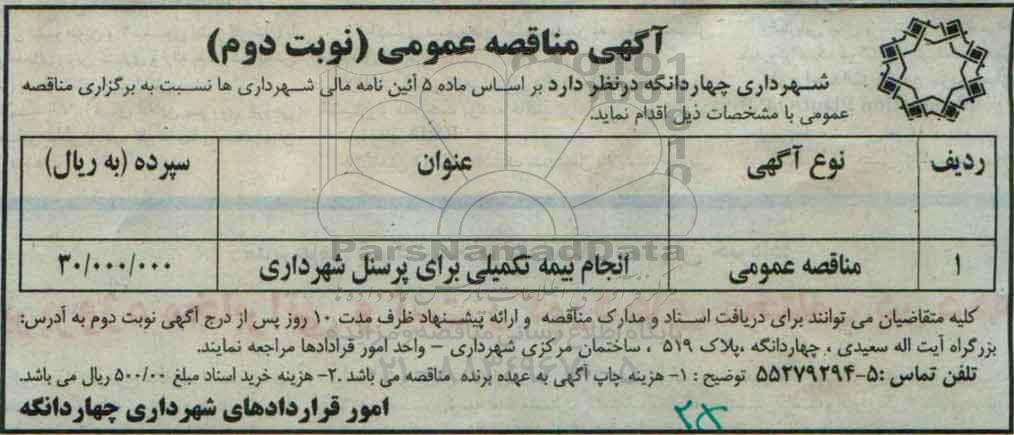 آگهی مناقصه عمومی (نوبت دوم)
شهرداری چهاردانگه درنظر دارد بر اساس ماده ۵ آئین نامه مالی شهرداری ها نسبت به برگزاری مناقصه
عمومی با مشخصات ذیل اقدام نماید.
ردیف نوع آگهی عنوان سپرده (به ریال)
۱ مناقصه عمومی انجام بیمه تکمیلی برای پرسنل شهرداری ۳۰/۰۰۰/۰۰۰
ParsNamadData
کلیه متقاضیان می توانند برای دریافت اسناد و مدارک مناقصه و ارائه پیشنهاد ظرف مدت ۱۰ روز پس از درج آگهی نوبت دوم به آدرس:
بزرگراه آیت اله سعیدی ، چهاردانگه ،پلاک ۵۱۹ ، ساختمان مرکزی شهرداری – واحد امور قرادادها مراجعه نمایند.
تلفن تماس :۵-۵۵۲۷۹۲۹۴ توضیح : ۱- هزینه چاپ آگهی به عهده برنده مناقصه می باشد .۲- هزینه خرید اسناد مبلغ ۵۰۰/۰۰ ریال می باشد.
امور قراردادهای شهرداری چهاردانگه